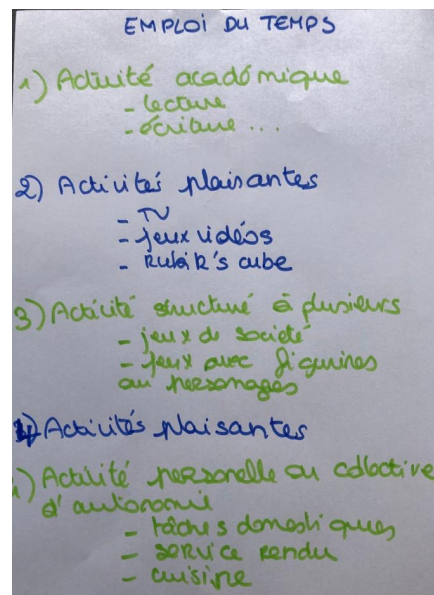 EMPLOI DU TEMPS
1) Activité académique
- lecture
- écriture ...
2) Activités plaisantes
- TV
- Jeux vidéos
- Rubik's cube
3) Activité structuré à plusieurs
- jeux de societé
- jeux avec figurines
ou personages
4) Activités plaisantes
) Activité personelle ou collective
d'autonomie
- tâches domestiques
- service rendu
- cuisine